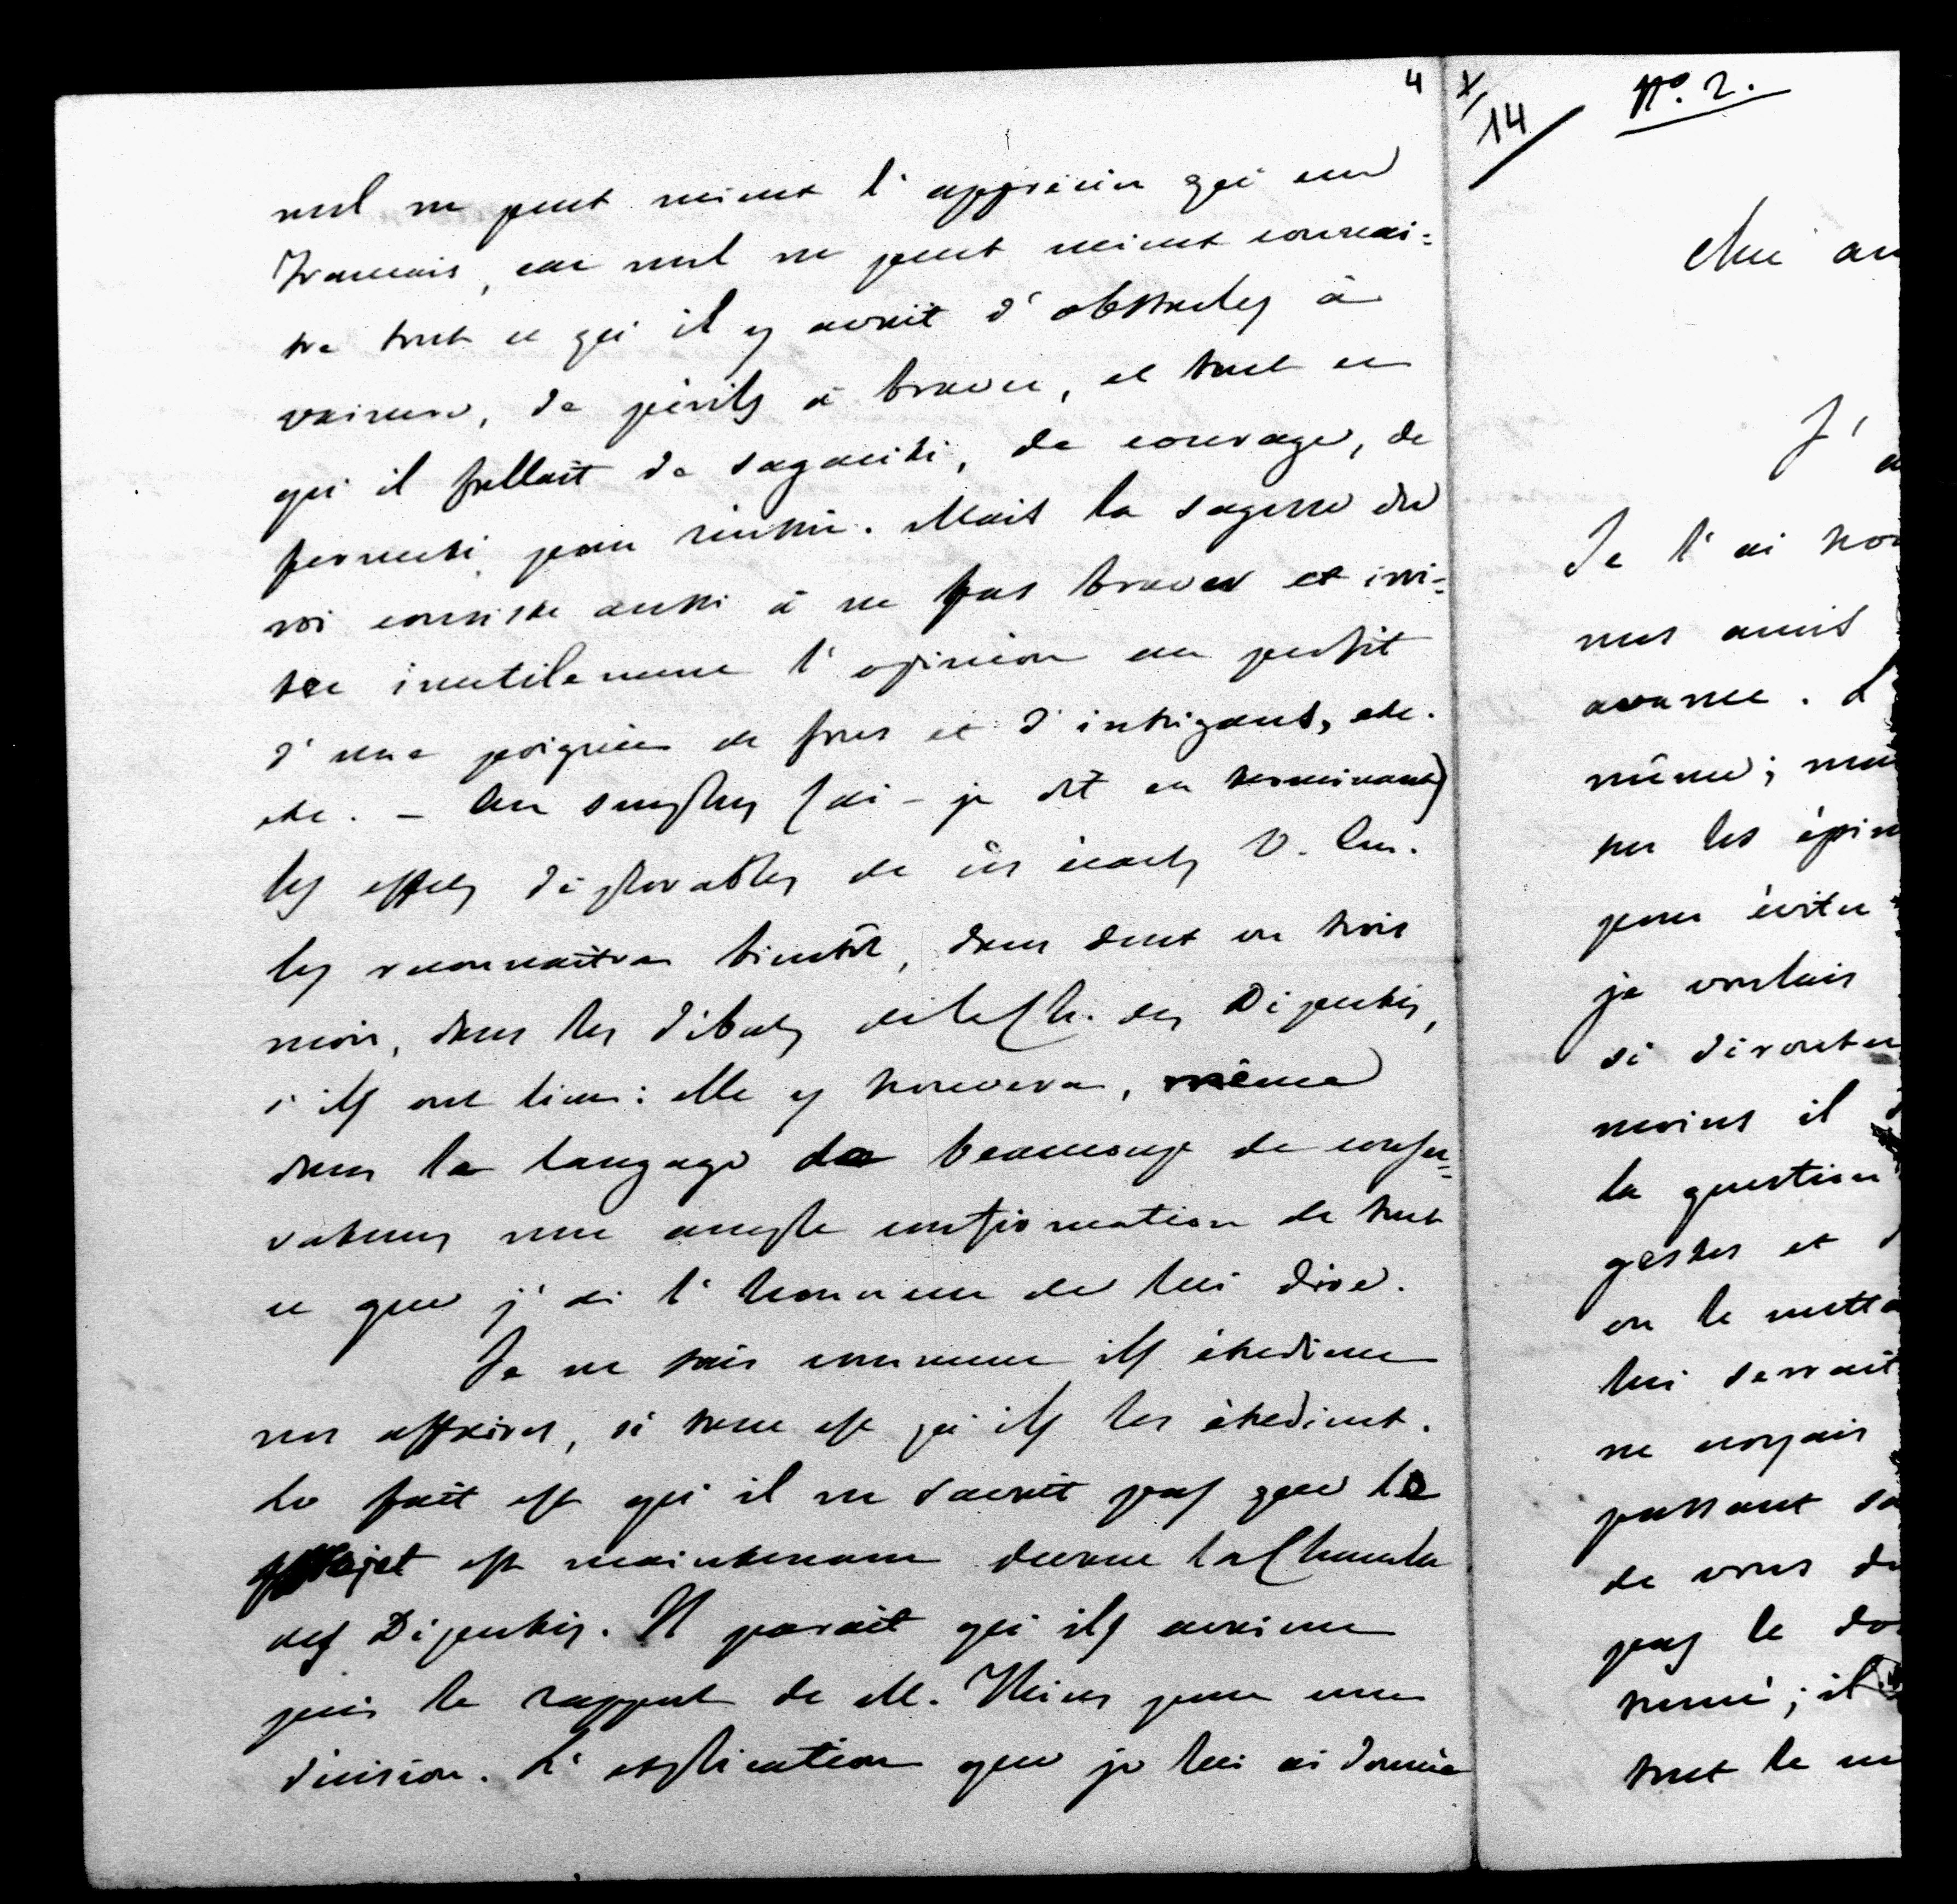 4
nul ne peut mieux l'apprécier qu'un
Français, car nul ne peut mieux connai=
tre tout ce qu'il y avait d'obstacles à
vaincre, de périls à braver, et tout ce
qu'il fallait de sagacité, de courage, de
fermeté pour réussir. Mais la sagesse du
roi consiste aussi à ne pas braver et irri=
ter inutilement l'opinion au profit
d'une poignée de fous et d'intrigants, etc.
etc. – Au surplus (ai-je dit en terminant)
les effets déplorables de ces écarts V. Em.
les reconnaîtra bientôt, dans deux ou trois
mois, dans les débats de la Ch. des Députés,
s'ils ont lieu: elle y trouvera, même
dans le langage de beaucoup de conser=
vateurs une ample confirmation de tout
ce que j'ai l'honneur de lui dire.
Je ne sais comment ils étudient
nos affaires, si tant est qu'ils les étudient.
Le fait est qu'il ne savait pas que le
projet est maintenant devant la Chambre
des Députés. Il paraît qu'ils avaient
pris le rapport de M. Thiers pour une
décision. L'explication que je lui ai donnée
X/14
N°. 2.
Cher am
J'a
Je l'ai trou
mes amis
avance. L
même; mai
sur les épin
pour éviter
je voulais
si dérouter
moins il
la question
gestes et
on le metta
lui serrait
ne croyais
passant sa
de vous do
pas le do
miné; il
tout le m